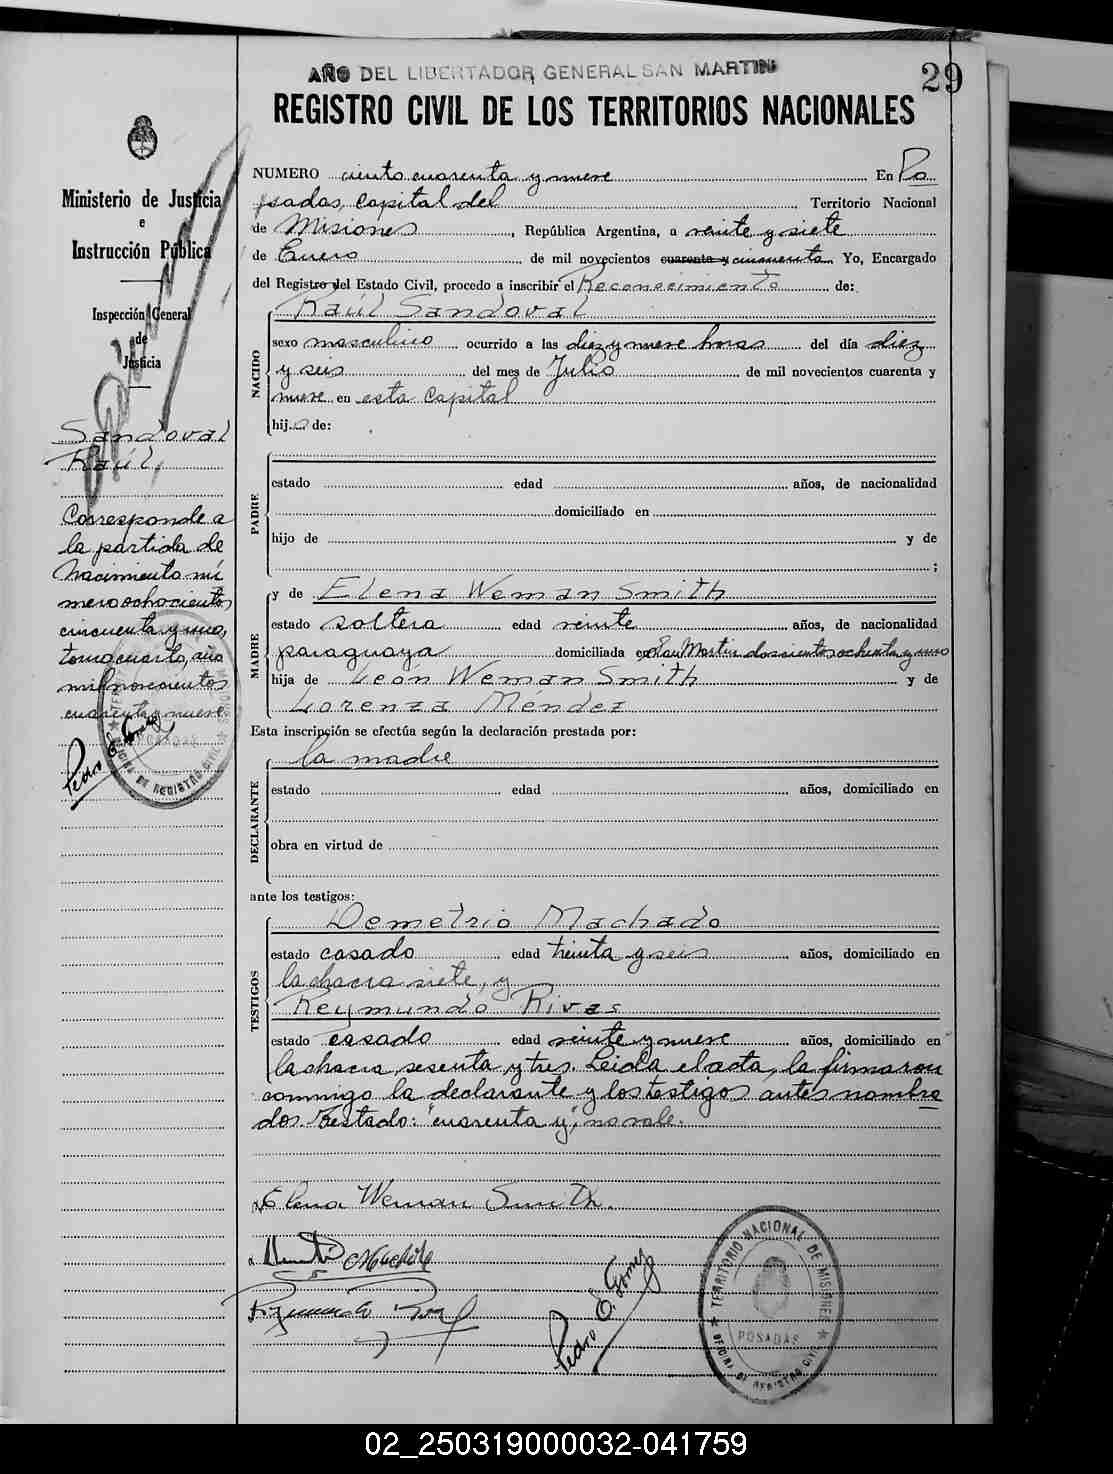 AÑO DEL LIBERTADOR GENERAL SAN MARTIN
29
REGISTRO CIVIL DE LOS TERRITORIOS NACIONALES
Ministerio de Justicia
e
Instrucción Pública
Inspección General
de
Justicia
Sandoval
Raúl,
Corresponde a
la partida de
Nacimiento nú
mero ochocientos
cincuenta y uno,
tomo cuarto, año
mil novecientos
cuarenta y nueve
Pedro E. Gomez
NUMERO ciento cuarenta y nueve En Po
sadas, capital del Territorio Nacional
de Misiones, República Argentina, a veinte y siete
de Enero de mil novecientos cuarenta y cincuenta. Yo, Encargado
del Registro del Estado Civil, procedo a inscribir el Reconocimiento de:
NACIDO
Raúl Sandoval
sexo masculino ocurrido a las diez y nueve horas del día diez
y seis del mes de Julio de mil novecientos cuarenta y
nueve en esta Capital
hijo de:
PADRE
estado edad años, de nacionalidad
domiciliado en
hijo de y de
;
MADRE
y de Elena Weman Smith
estado soltera edad veinte años, de nacionalidad
paraguaya domiciliada en San Martin doscientos ochenta y uno
hija de León Weman Smith y de
Lorenza Méndez
Esta inscripción se efectúa según la declaración prestada por:
DECLARANTE
la madre
estado edad años, domiciliado en
obra en virtud de
ante los testigos:
TESTIGOS
Demetrio Machado
estado casado edad treinta y seis años, domiciliado en
la chacra siete, y
Reymundo Rivas
estado casado edad veinte y nueve años, domiciliado en
la chacra sesenta y tres. Leida el acta, la firmaron
conmigo la declarante y los testigos antes nombra
dos. Testado: "cuarenta y", no vale.
Elena Weman Smith.
Pedro E. Gomez
TERRITORIO NACIONAL DE MISIONES
POSADAS
OFICINA DE REGISTRO CIVIL
02_250319000032-041759